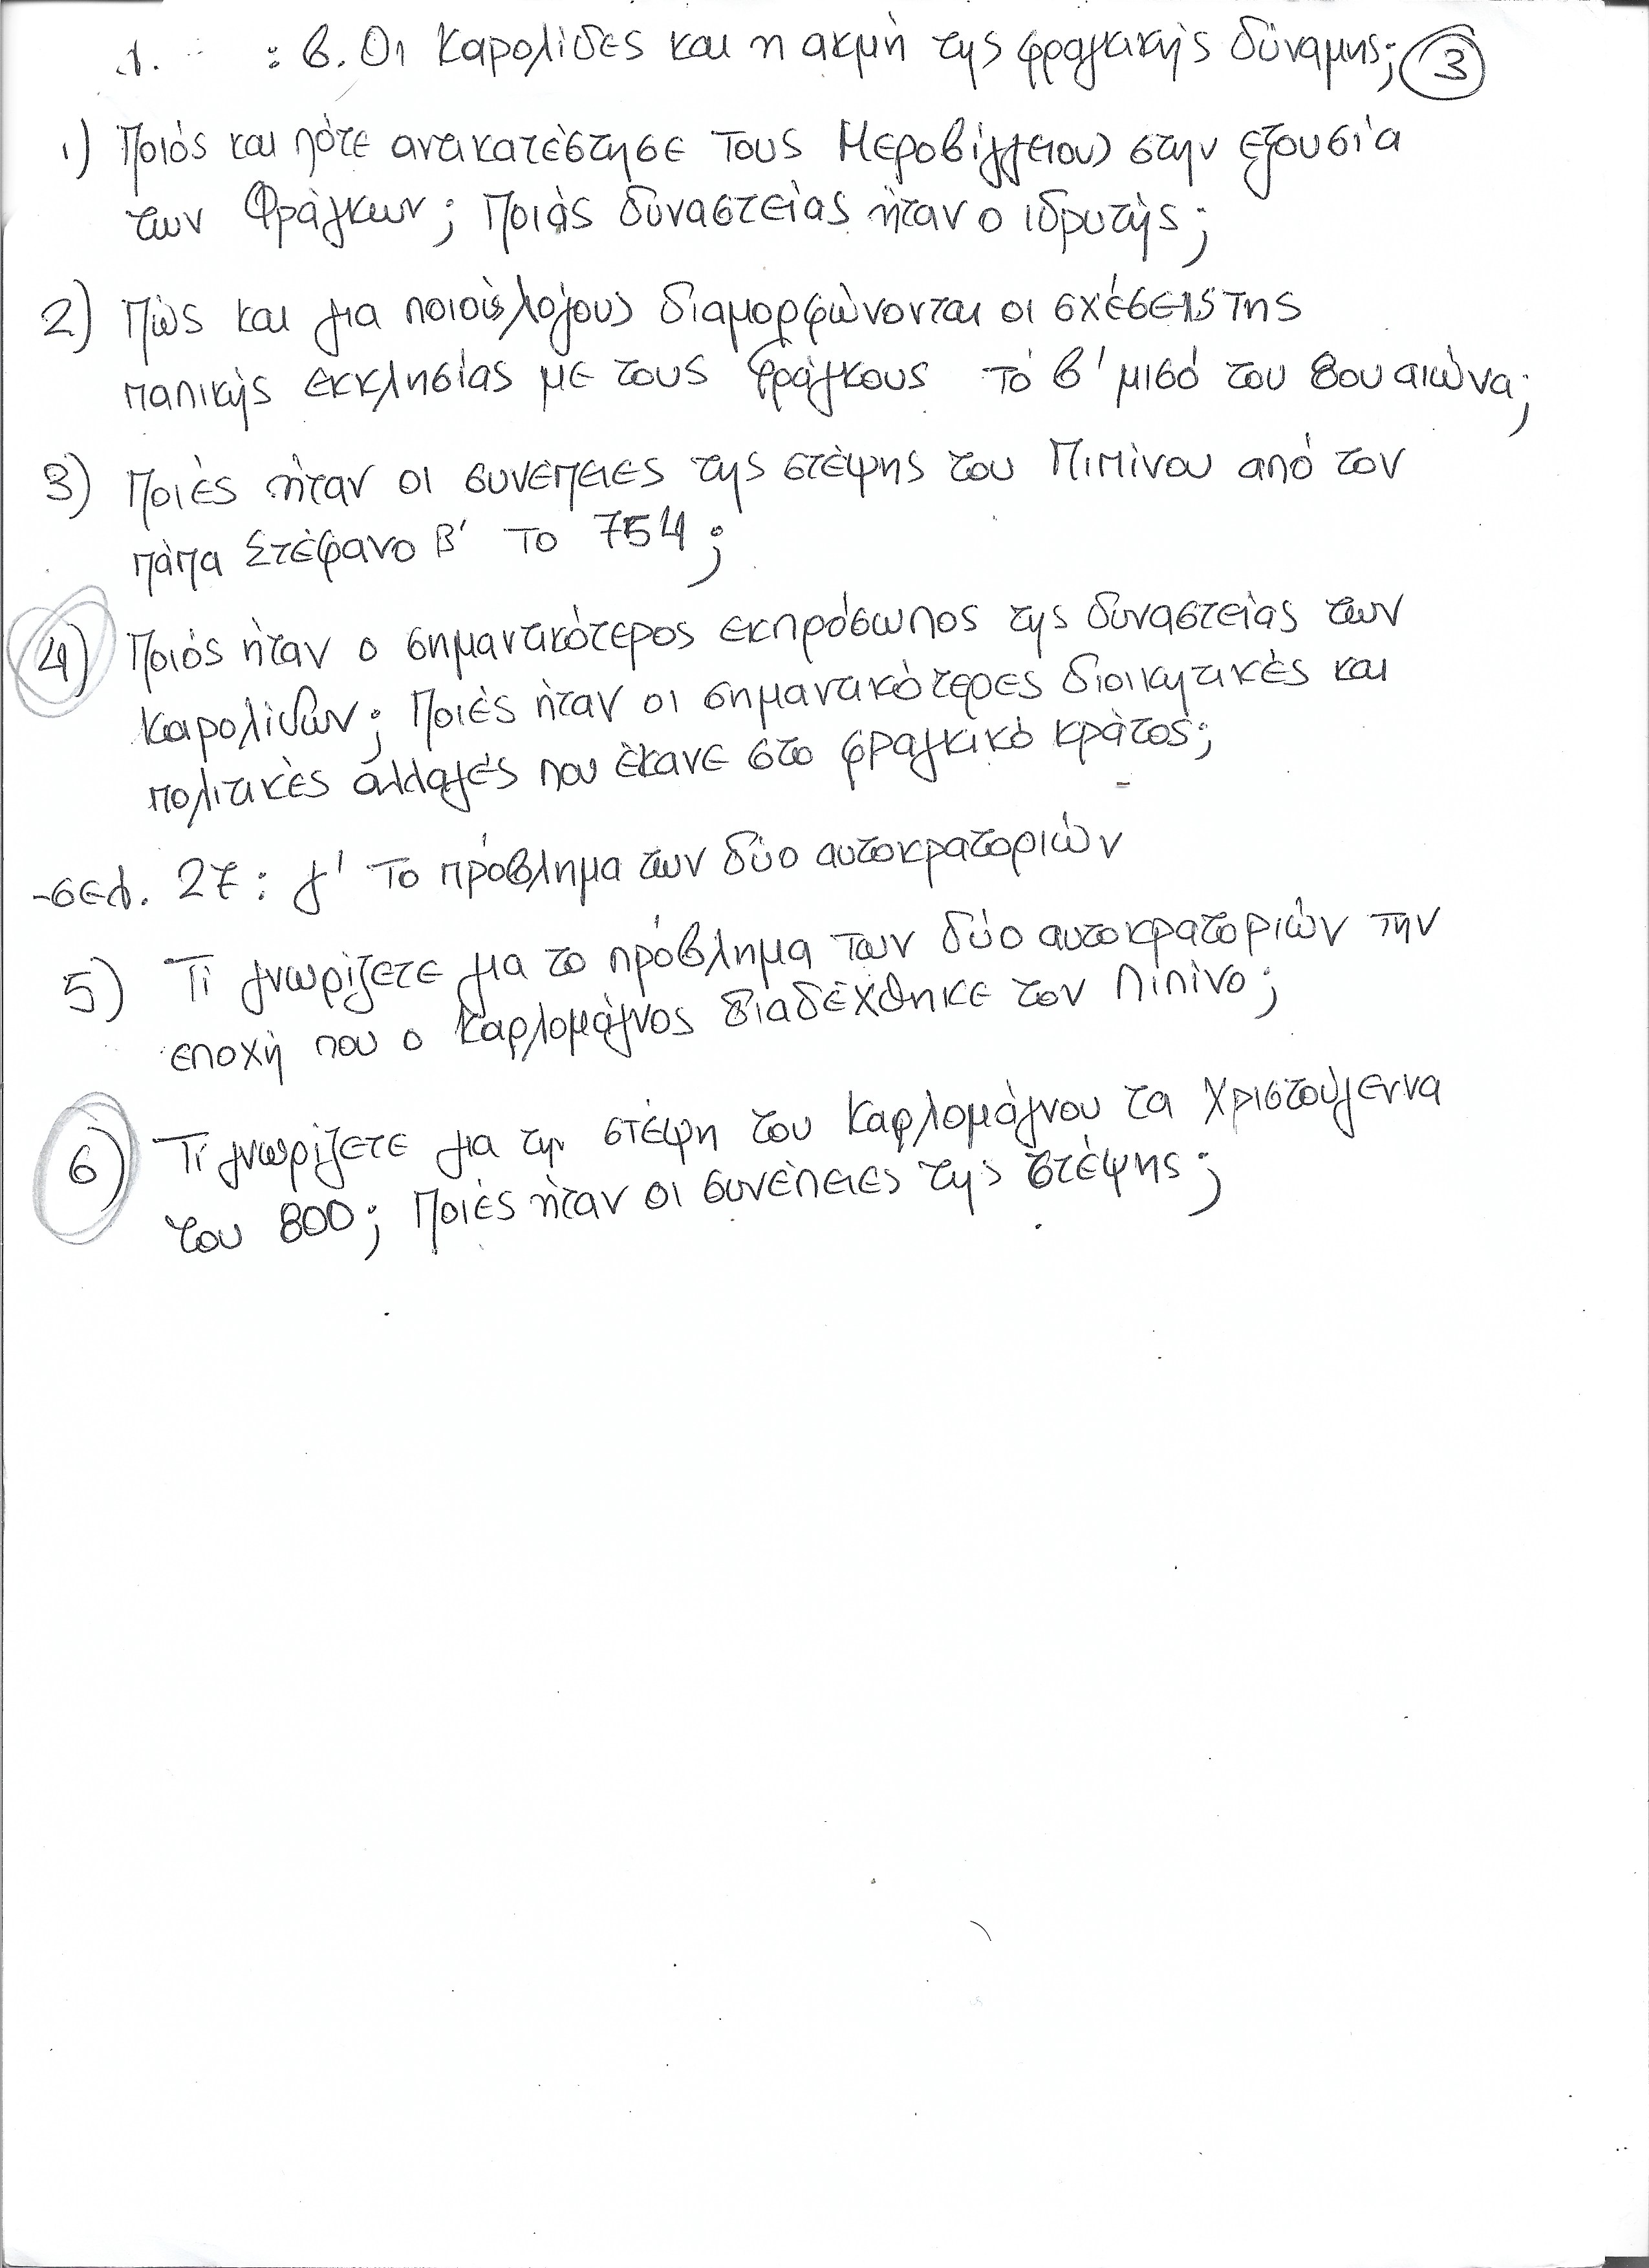 β. Οι Καρολίδες και η ακμή της φραγκικής δύναμης; 3
1) Ποιός και πότε αντικατέστησε τους Μεροβίγγειους στην εξουσία
των Φράγκων; Ποιάς δυναστείας ήταν ο ιδρυτής;
2) Πώς και για ποιούς λόγους διαμορφώνονται οι σχέσεις της
παπικής εκκλησίας με τους Φράγκους το β' μισό του 8ου αιώνα;
3) Ποιές ήταν οι συνέπειες της στέψης του Πιπίνου από τον
πάπα Στέφανο Β' το 754;
4) Ποιός ήταν ο σημαντικότερος εκπρόσωπος της δυναστείας των
Καρολιδών; Ποιές ήταν οι σημαντικότερες διοικητικές και
πολιτικές αλλαγές που έκανε στο φραγκικό κράτος;
-σελ. 27: γ' Το πρόβλημα των δύο αυτοκρατοριών
5) Τι γνωρίζετε για το πρόβλημα των δύο αυτοκρατοριών την
εποχή που ο Καρλομάγνος διαδέχθηκε τον Πιπίνο;
6) Τι γνωρίζετε για την στέψη του Καρλομάγνου τα Χριστούγεννα
του 800; Ποιές ήταν οι συνέπειες της στέψης;